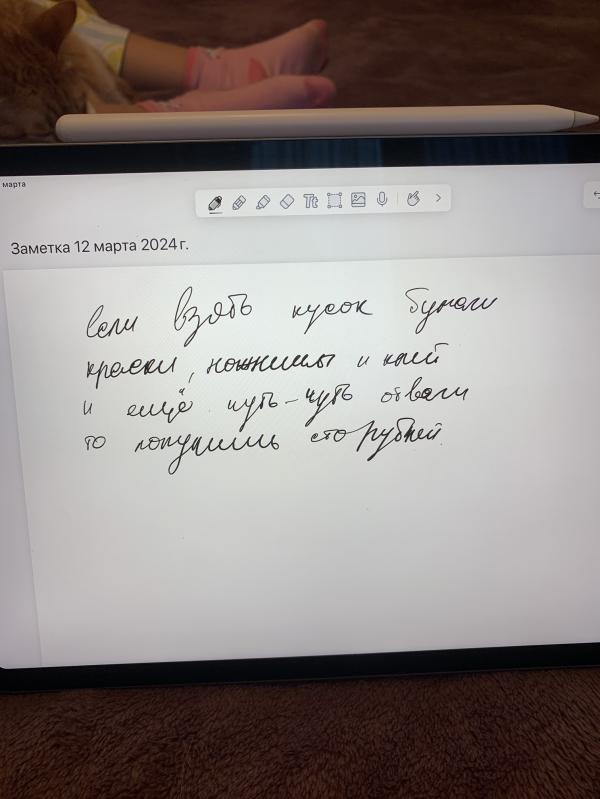 марта
Tt
Заметка 12 марта 2024 г.
Если взять кусок бумаги
краски, ножницы и клей
и ещё чуть-чуть отваги
то получишь сто рублей